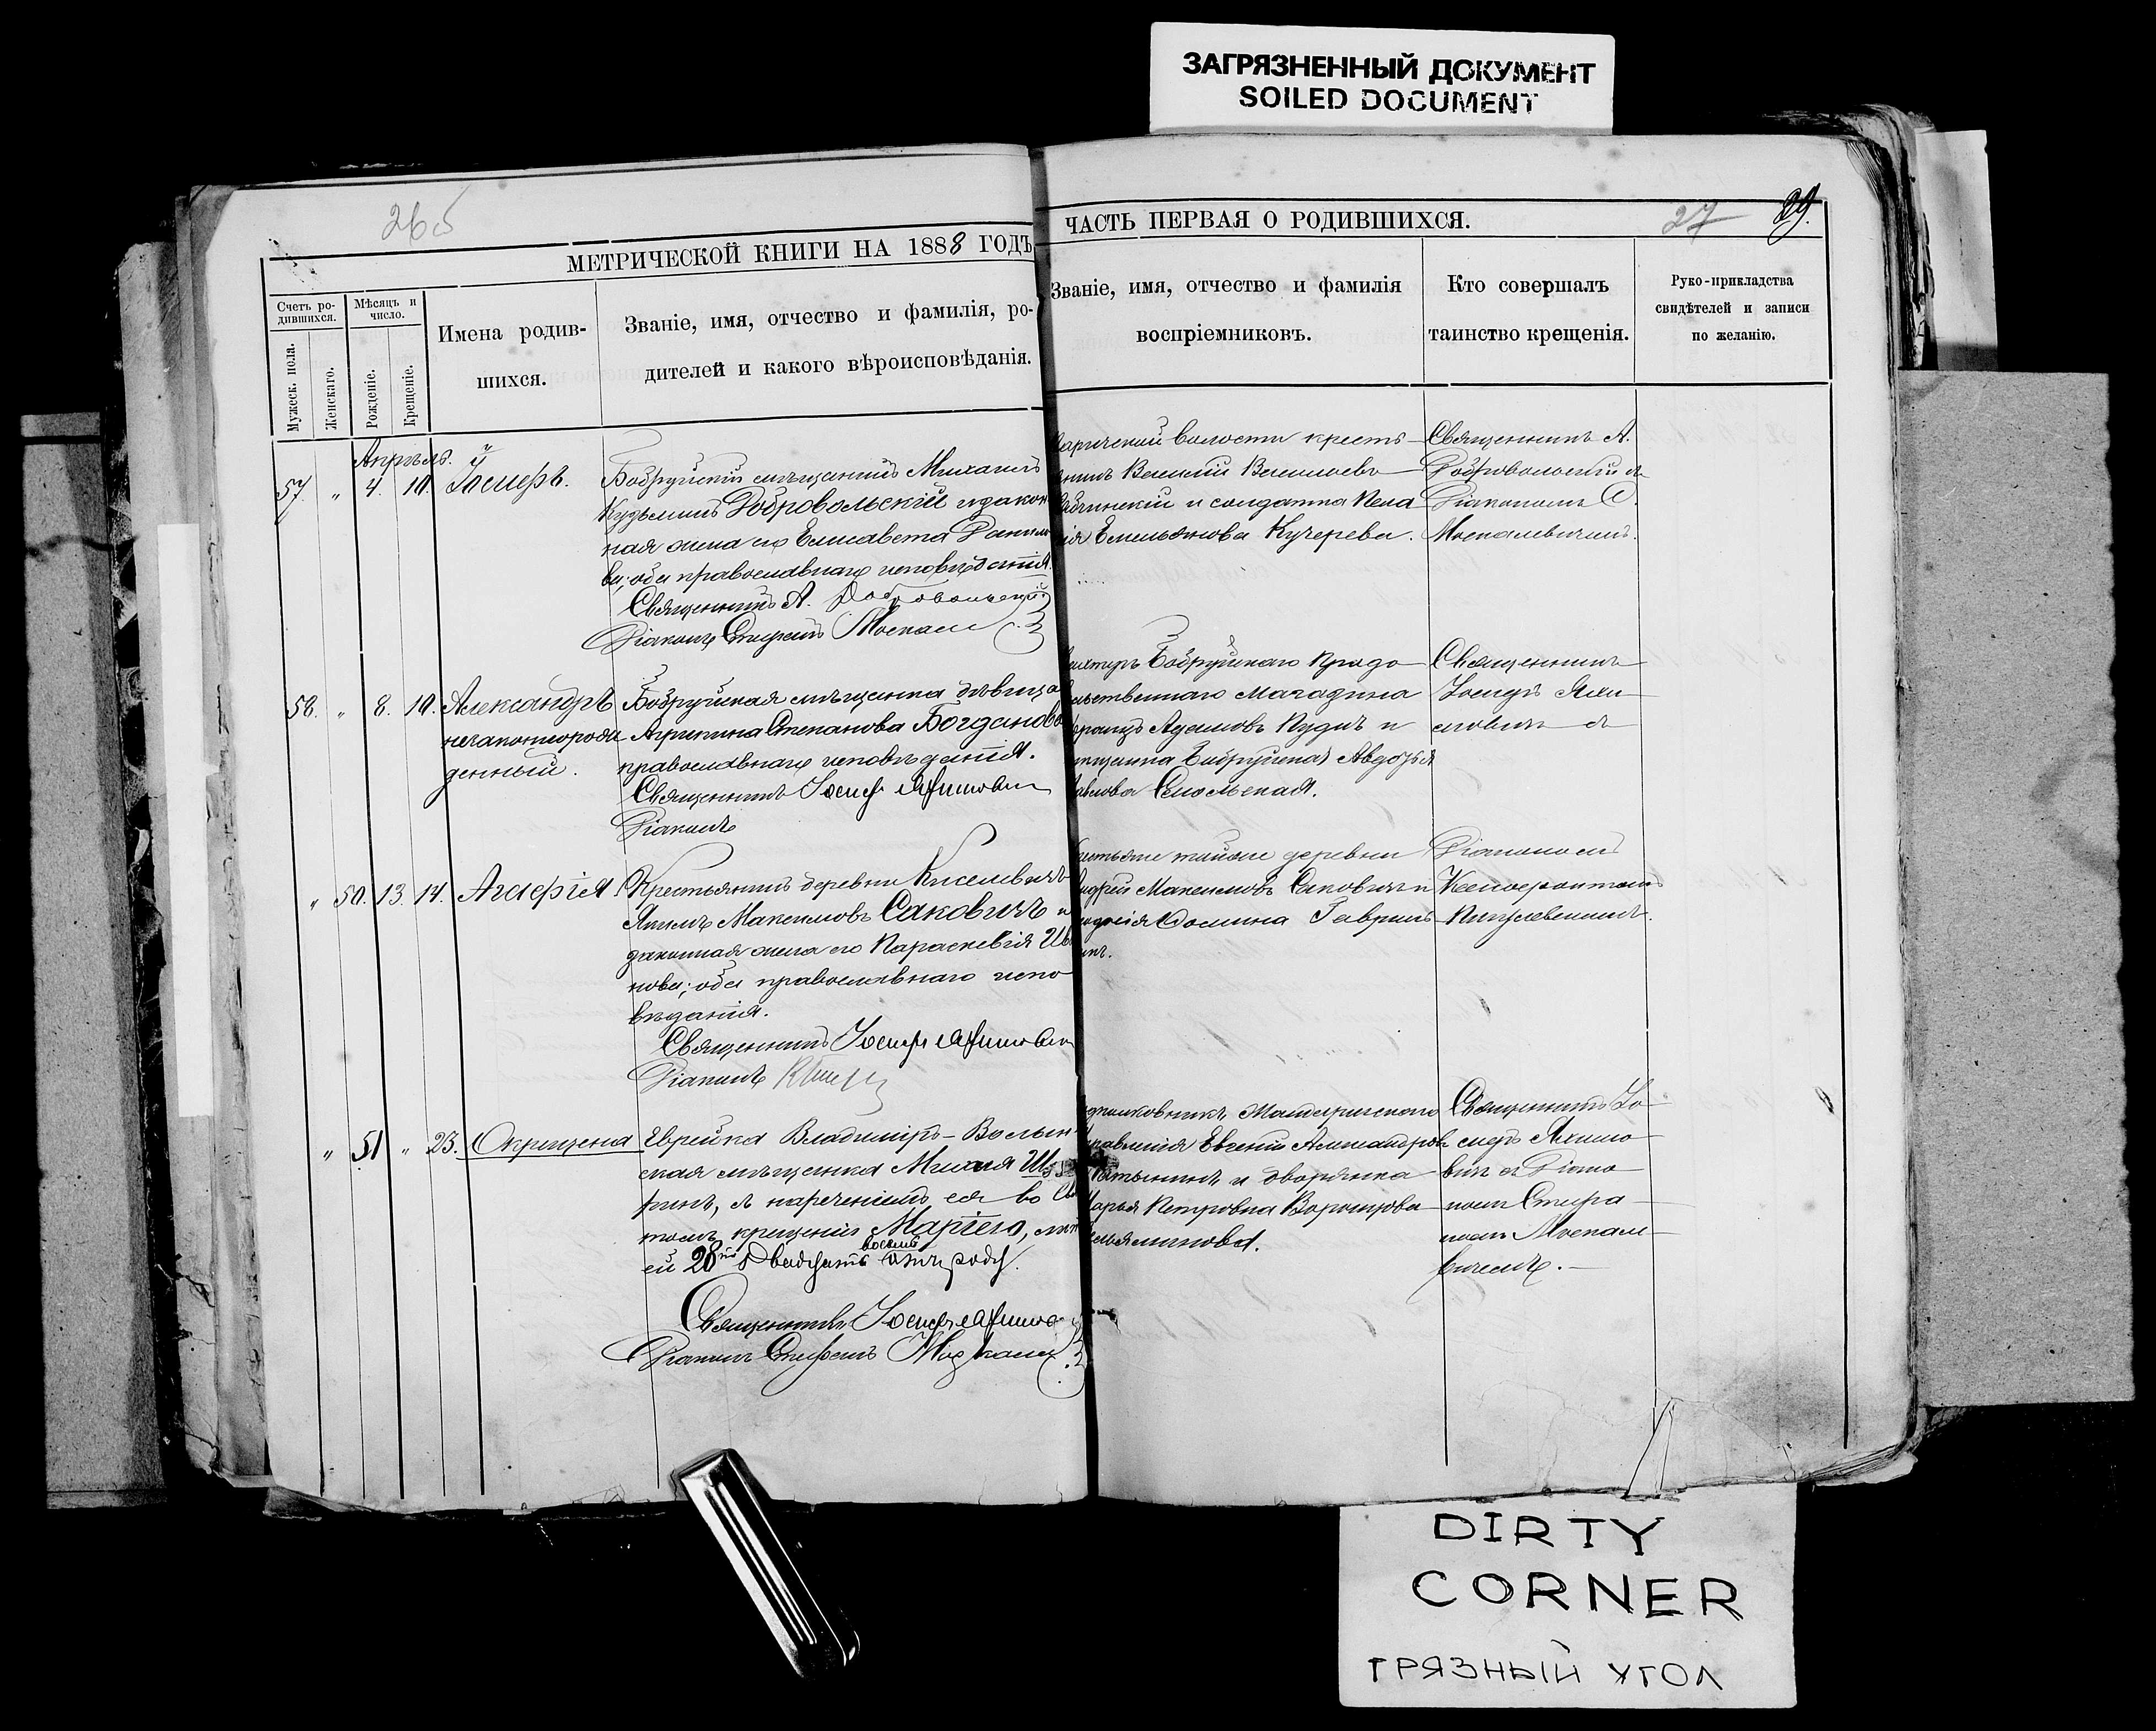 ЗАГРЯЗНЕННЫЙ ДОКУМЕНТ
SOILED DOCUMENT
265
МЕТРИЧЕСКОЙ КНИГИ НА 1888 ГОДЪ
ЧАСТЬ ПЕРВАЯ О РОДИВШИХСЯ.
27
29.
Счетъ ро-
дившихся.
Мужеск. пола.
Женскаго.
Мѣсяцъ и
число.
Рожденіе.
Крещеніе.
Имена родив-
шихся.
Званіе, имя, отчество и фамилія, ро-
дителей и какого вѣроисповѣданія.
Званіе, имя, отчество и фамилія
воспріемниковъ.
Кто совершалъ
таинство крещенія.
Руко-прикладства
свидѣтелей и записи
по желанію.
Апрѣль.
57. " 4. 10. Іосифъ.
Бобруйскій мѣщанинъ Михаилъ
Кузьминъ Добровольскій и закон
ная жена его Елисавета
ва; оба православнаго исповѣданія.
Священникъ А. Добровольскій
Діаконъ Стефанъ
волости кресть-
Василій Васильевъ
и солдатка Пела
гія Емельянова Кучерева.
Священникъ А.
Добровольскій съ
Діакономъ С.
Москалевичемъ.
58. " 8. 10. Александръ
незаконнорож
денный.
Бобруйская мѣщанка дѣвица
Агрипина Степанова Богданова
православнаго исповѣданія.
Священникъ Іосифъ Яхимович
Діаконъ
Бобруйскаго Продо
вольственнаго магазина
Францъ Адамовъ и
мѣщанка Бобруйская Авдотья
Павлова Смольская.
Священникъ
Іосифъ Яхи-
мовичъ съ
" 50. 13. 14. Агафія
Крестьянинъ деревни Киселевичъ
Якимъ Максимовъ Саковичъ и
законная жена его Параскевія Ив
нова; оба православнаго испо
вѣданія.
Священникъ Іосифъ Яхимович
Діаконъ
крестьяне той же деревни
Андрей Максимовъ Саковичъ и
Гаврил
Діакономъ
Ксенофонтомъ
" 51 " 23. Окрещена
Еврейка Владиміръ-Волын
ская мѣщанка
ринъ, съ нареченіемъ ея во Св
томъ крещеніи Маріею,
ей 28 Двадцать восемь годъ.
Священникъ Іосифъ Яхимов
Діаконъ Стефанъ
Подполковникъ
Управленія Евгеній Александров
и дворянка
Марья Петровна Воронцова
Вельяминова.
Священникъ Іо-
сифъ Яхимо-
вичъ съ Діако-
номъ Стефа-
номъ Москале-
вичемъ.
DIRTY
CORNER
ГРЯЗНЫЙ УГОЛ